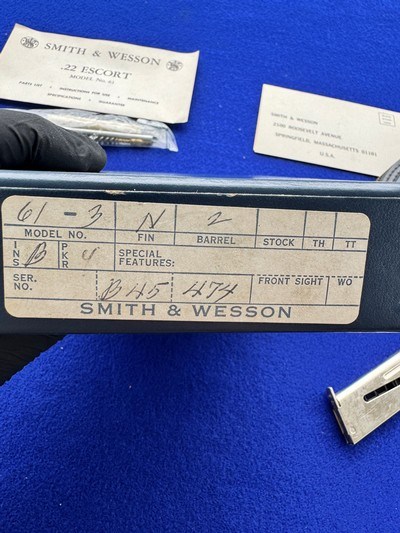 SMITH & WESSON
.22 ESCORT
MODEL No. 61
PARTS LIST • INSTRUCTIONS FOR USE • MAINTENANCE
SPECIFICATIONS • GUARANTEE
SMITH & WESSON
2100 ROOSEVELT AVENUE,
SPRINGFIELD, MASSACHUSETTS 01101
U.S.A.
61-3 N 2
MODEL NO. FIN BARREL STOCK TH TT
INS B PKR SPECIAL FEATURES:
SER. NO. B45 474 FRONT SIGHT WO
SMITH & WESSON